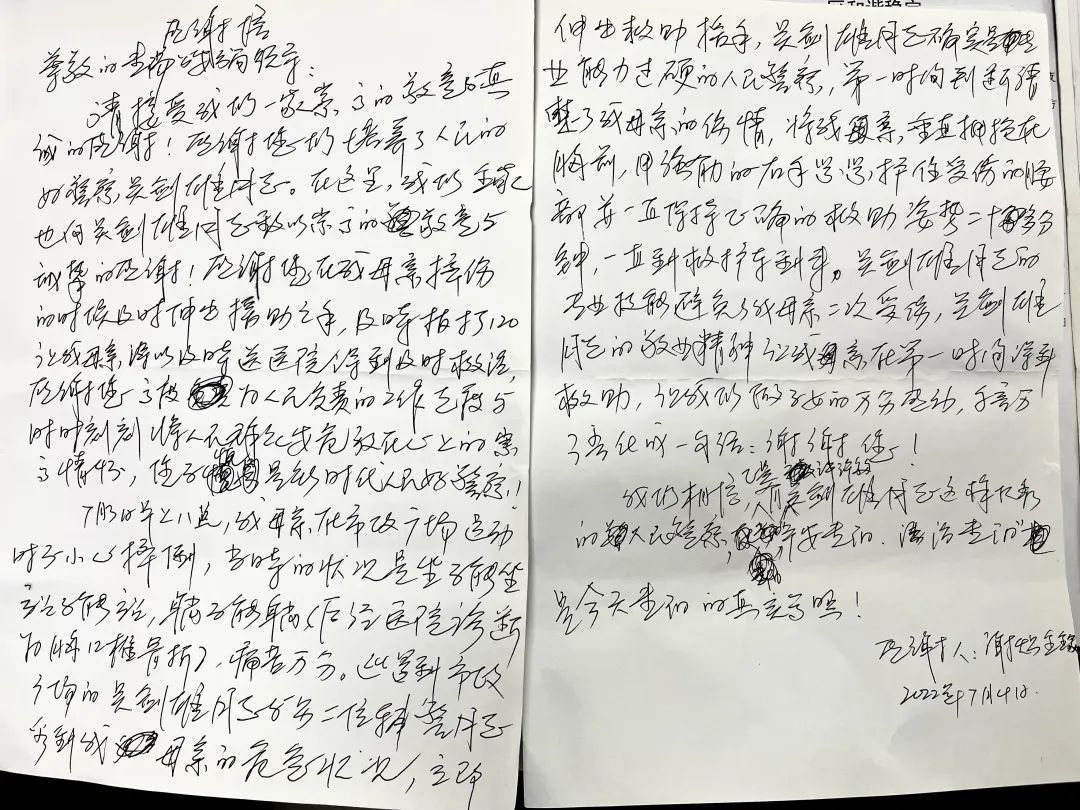 感谢信
尊敬的娄底公安局领导：
请接受我们一家崇高的敬意与真
诚的感谢！感谢您们培养了人民的
好警察，吴剑雄同志。在这里，我们全家
也向吴剑雄同志致以崇高的敬意与
诚挚的感谢！感谢您在我母亲摔伤
的时候及时伸出援助之手，及时拨打了120
让我母亲得以及时送医院得到及时救治，
感谢您高度为人民负责的工作态度与
时时刻刻将人民群众安危放在心上的崇
高情怀，您不愧是新时代人民好警察！
7月3日早上八点，我母亲在市政广场运动
时不小心摔倒，当时的状况是坐不能坐
立不能立，躺不能躺（后经医院诊断
为胸12椎骨折），痛苦万分。巡逻到市政
广场的吴剑雄同志与另二位辅警同志
看到我母亲的危急状况，立即
伸出救助援手，吴剑雄同志确实是专
业能力过硬的人民警察，第一时间判断清
楚了我母亲的伤情，将我母亲垂直拥抱在
胸前，用强劲的右手紧紧护住受伤的腰
部并一直保持正确的救助姿势二十多分
钟，一直到救护车到来。吴剑雄同志的
专业技能避免了我母亲二次受伤，吴剑雄
同志的敬业精神让我母亲在第一时间得到
救助，让我们做子女的万分感动，千言万
语化成一句话：谢谢您！
我们相信，正是有许许多多
吴剑雄同志这样优秀
的人民警察，平安娄底、法治娄底
是今天娄底的真实写照！
感谢人：谢
2022年7月4日.